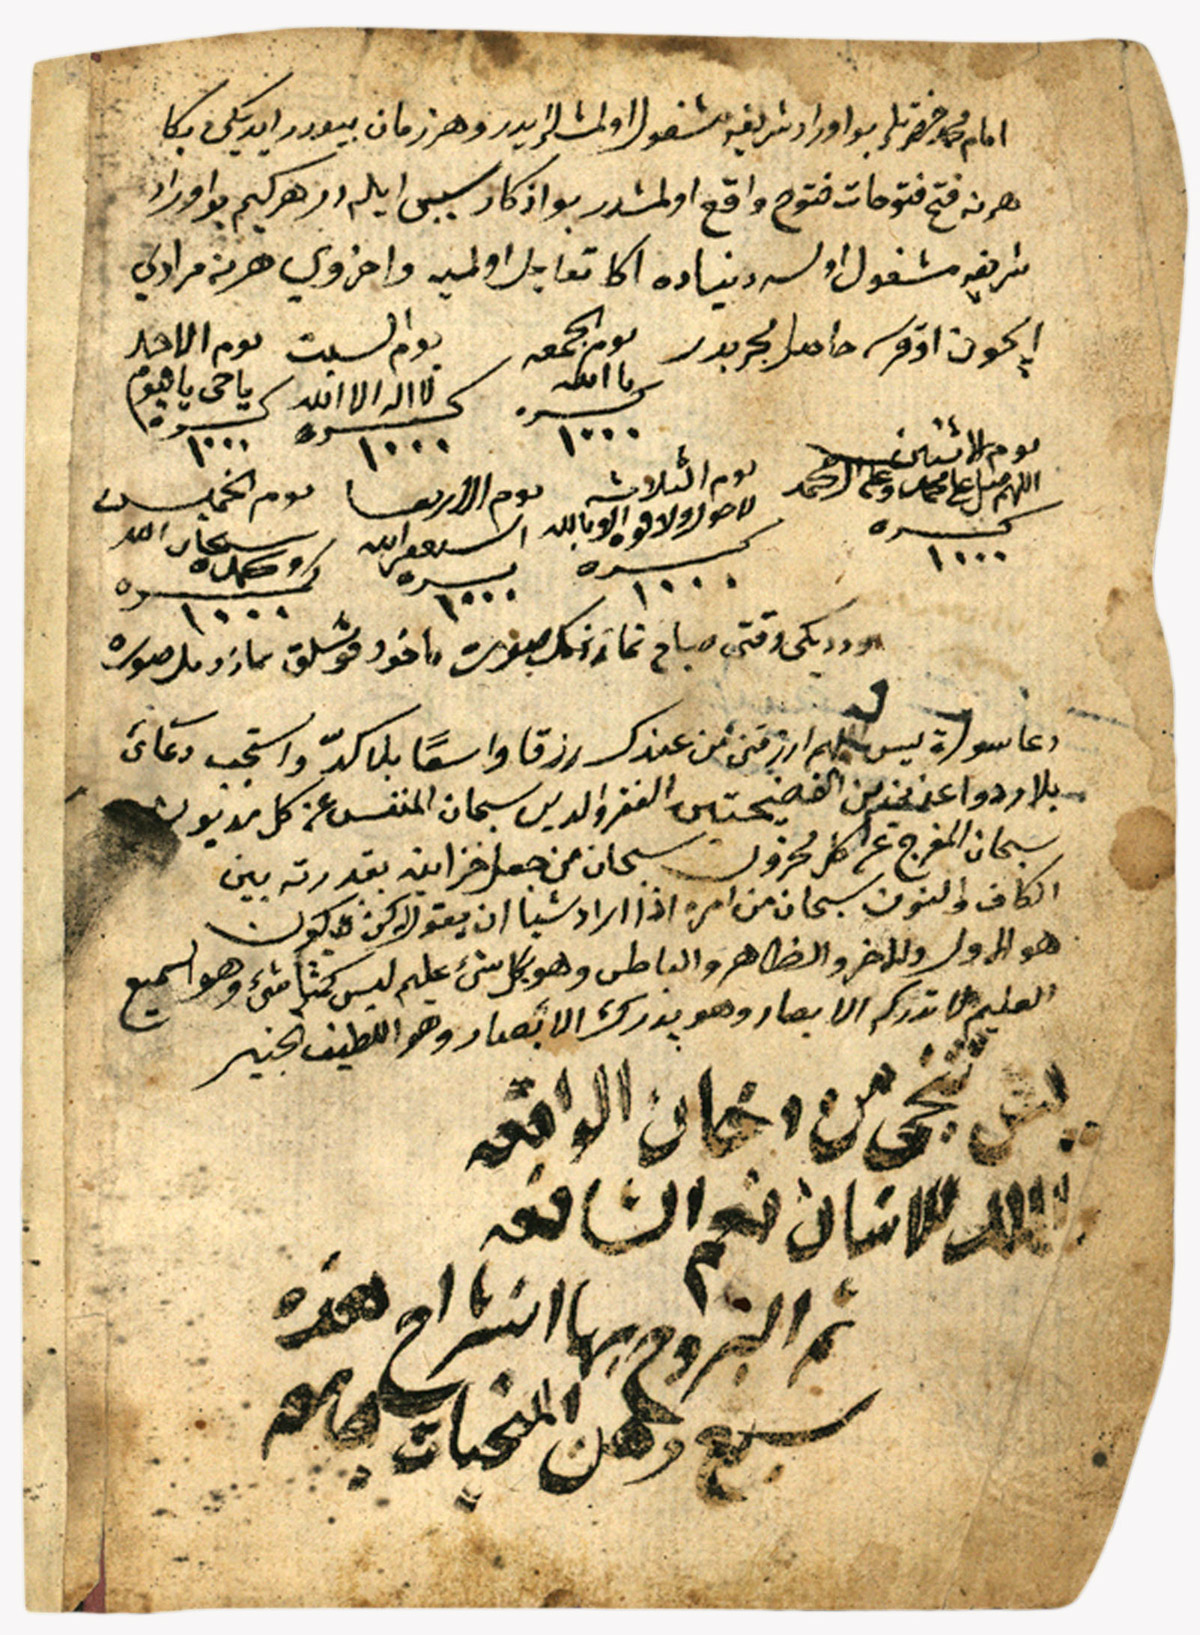 امام محمد حضرتلری بو اوراد شریفه مشغول اولمشلر ایدر وهر زمان بیوررلر ایدیکی بکا
هر نه فتح فتوحات فتوح واقع اولمشدر بو اذکار سببی ایله در هر کیم بو اوراد
شریفه مشغول اولسه دنیاده اکا تعاجل اولمیه واخروی هر نه مرادی
ایچون اوقرسه حاصل مجربدر
یوم الجمعه یوم السبت یوم الاحد
یا الله لا اله الا الله یا حی یا قیوم
کره کره کره
١٠٠٠ ١٠٠٠ ١٠٠٠
یوم الاثنین یوم الثلاثه یوم الاربعا یوم الخمیس
اللهم صل علی محمد وعلی ال محمد لا حول ولا قوه الا بالله استغفر الله سبحان الله وبحمده
کره کره کره کره
١٠٠٠ ١٠٠٠ ١٠٠٠ ١٠٠٠
وقتی صباح نمازندن صکره یاخود قوشلق نمازندن صکره
دعا سورة یس اللهم ارزقنی من عندک رزقا واسعا بلا کدّ واستجب دعائی
بلا رد واعذنی من الفضیحتین الفقر والدین سبحان المنفس عن کل مدیون
سبحان المفرج عن کل محزون سبحان من جعل خزاینه بقدرته بین
الکاف والنون سبحان من امره اذا اراد شیا ان یقول له کن فیکون
هو الاول والاخر والظاهر والباطن وهو بکل شئ علیم لیس کمثله شئ وهو السمیع
العلیم لا تدرکه الابصار وهو یدرک الابصار وهو اللطیف الخبیر
یس تنجی من دخان الواقعه
الملک للانسان نعم الشافعه
ثم البروج بها انشراح هذه
سبع وهن المنجیات جامعه